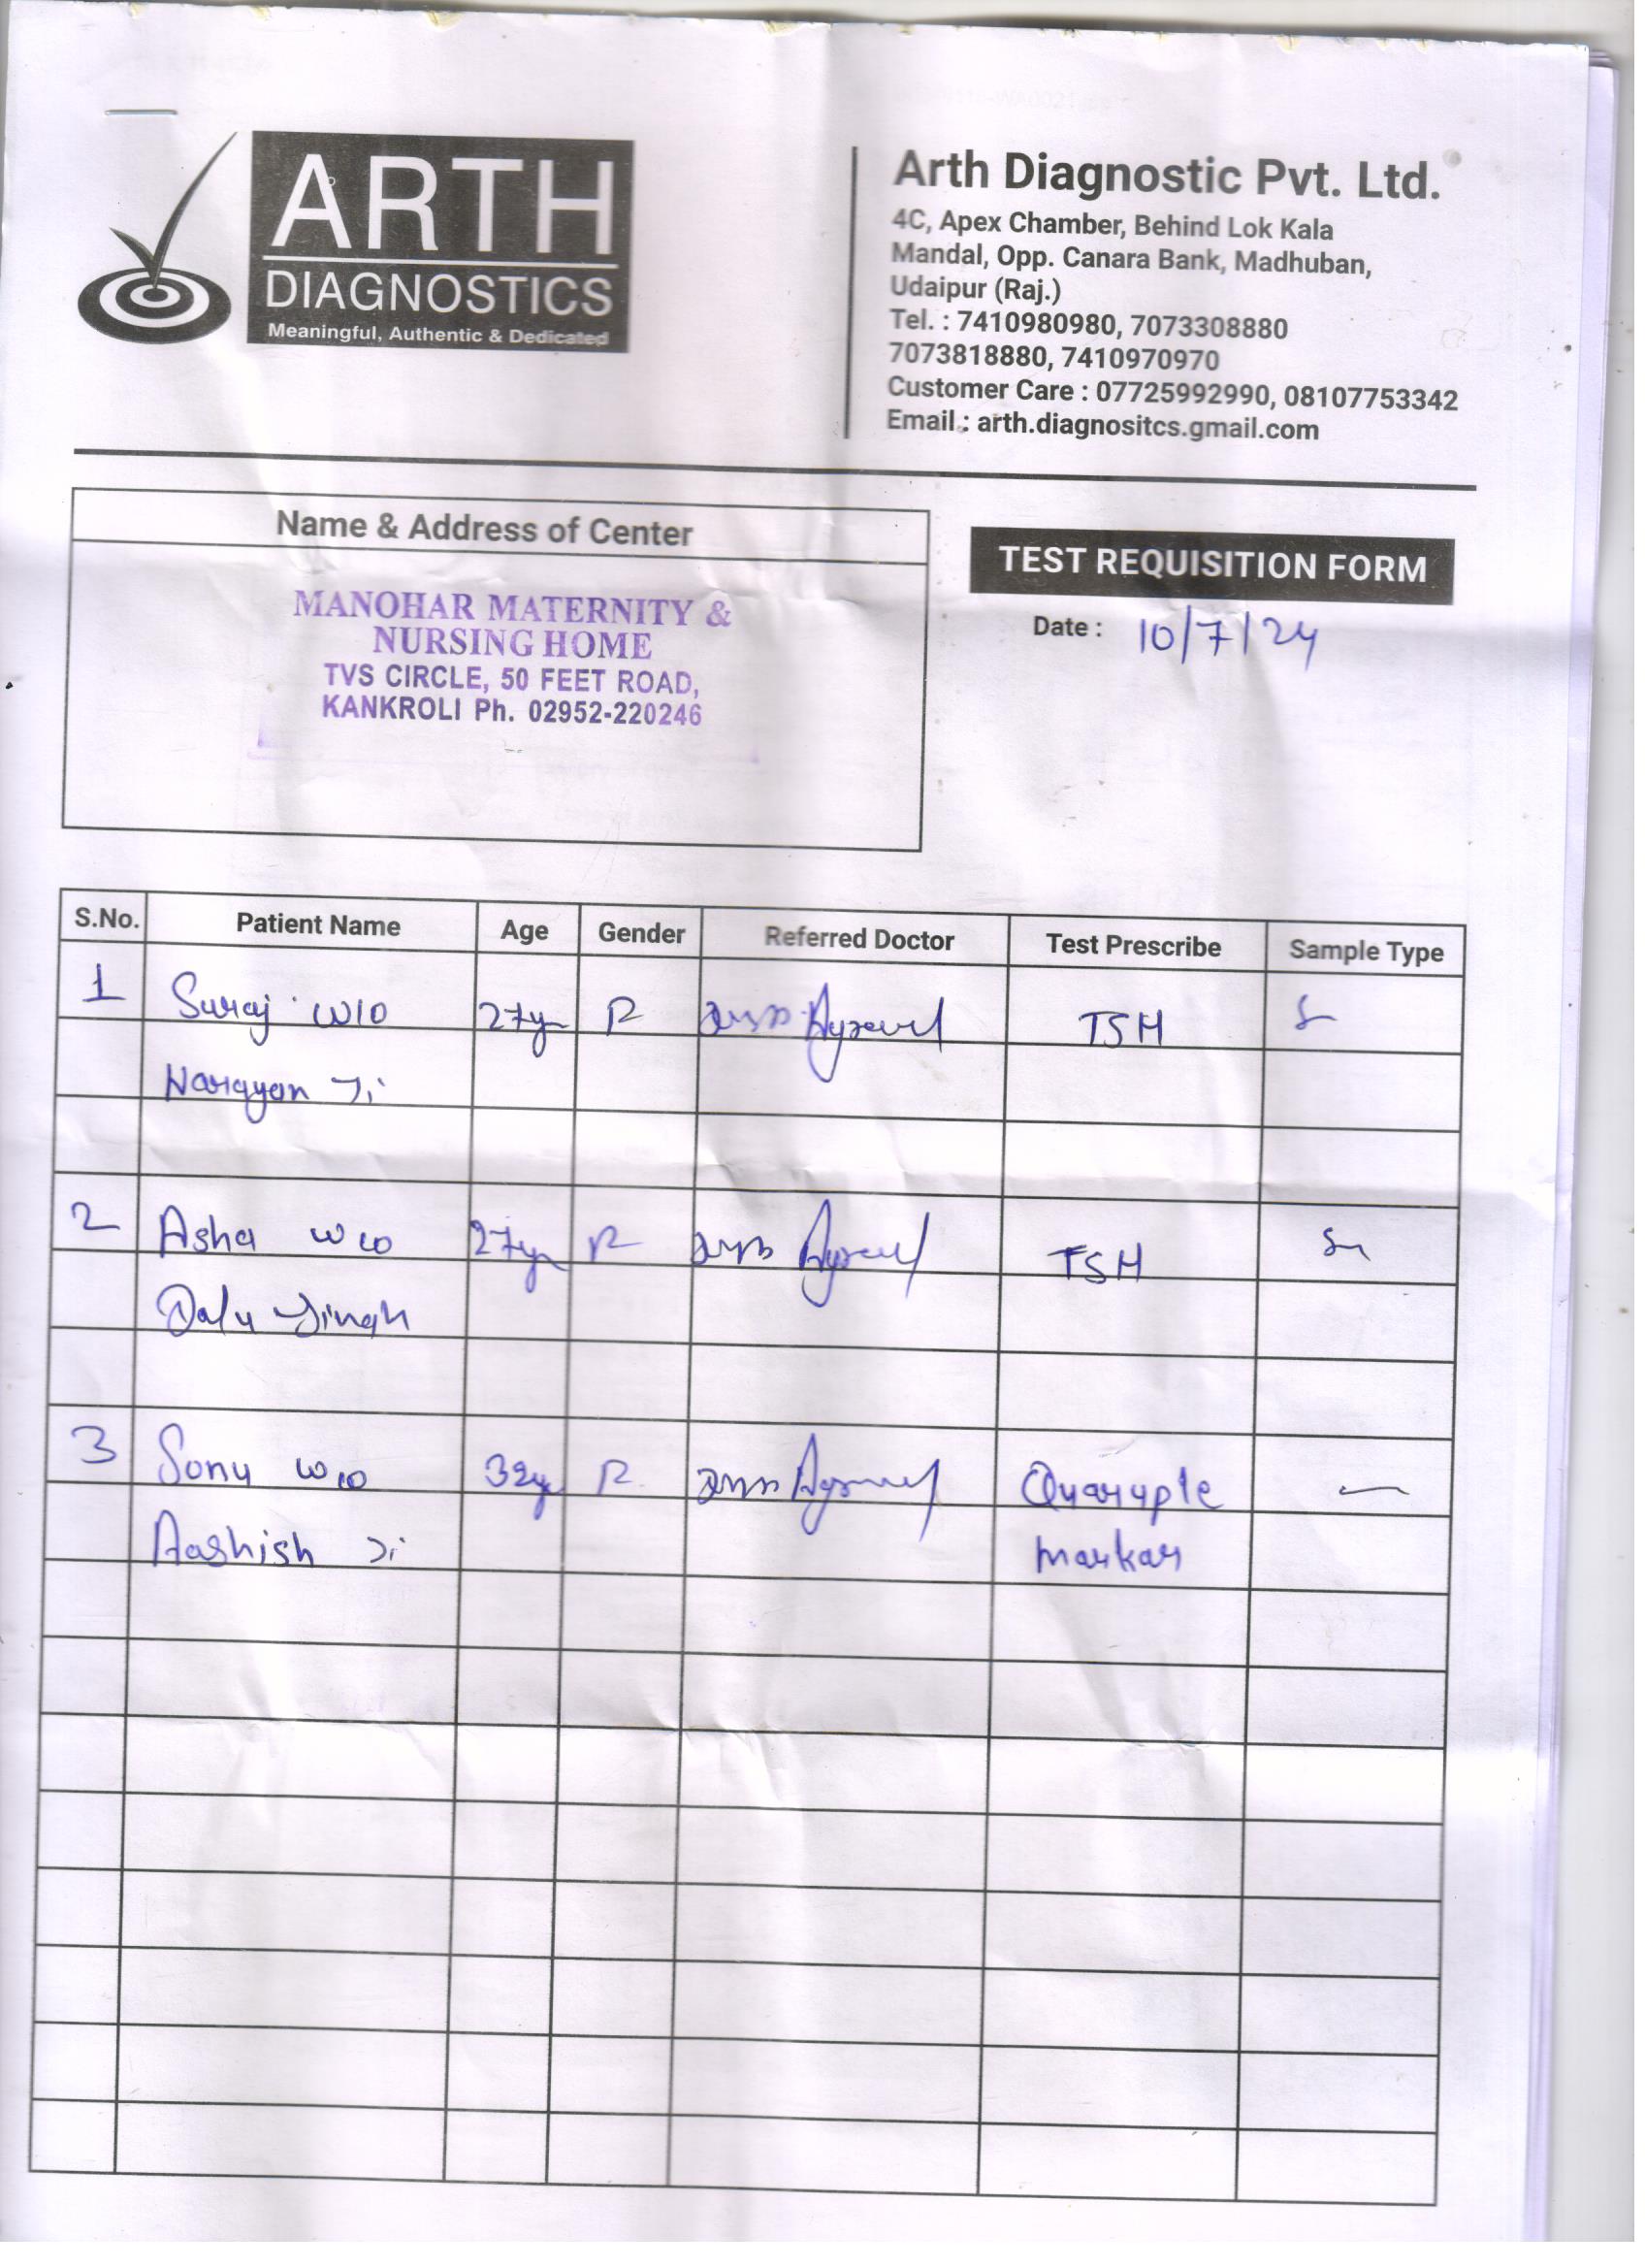 ARTH
DIAGNOSTICS
Meaningful, Authentic & Dedicated
Arth Diagnostic Pvt. Ltd.
4C, Apex Chamber, Behind Lok Kala
Mandal, Opp. Canara Bank, Madhuban,
Udaipur (Raj.)
Tel. : 7410980980, 7073308880
7073818880, 7410970970
Customer Care : 07725992990, 08107753342
Email : arth.diagnositcs.gmail.com
Name & Address of Center
MANOHAR MATERNITY &
NURSING HOME
TVS CIRCLE, 50 FEET ROAD,
KANKROLI Ph. 02952-220246
TEST REQUISITION FORM
Date : 10/7/24
S.No. Patient Name Age Gender Referred Doctor Test Prescribe Sample Type
1 Suraj W/O 27yr TSH
Narayan Ji
2 Asha W/O 27yr TSH
Dalu Singh
3 Sonu W/O 32y Quaruple
Aashish Ji markar